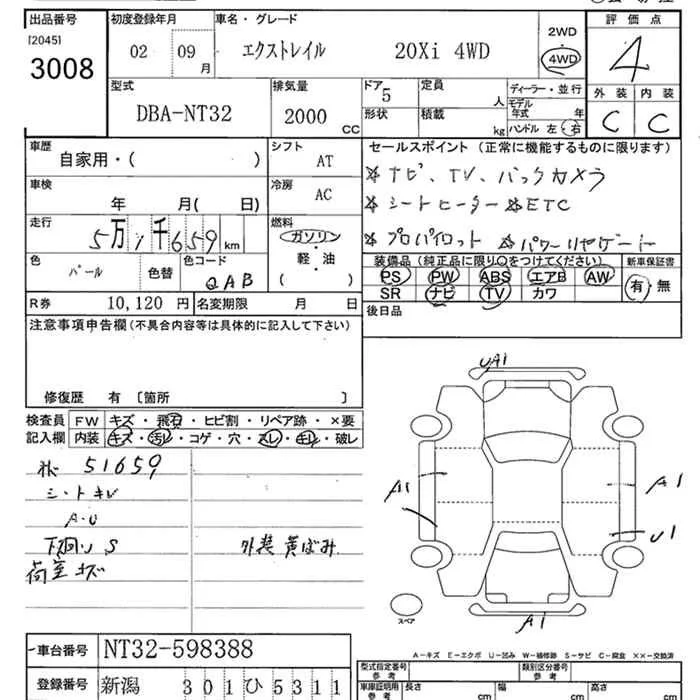 出品番号 初度登録年月 車名・グレード 2WD 評価点
[2045] 02 09月 エクストレイル 20Xi 4WD 4WD 4
3008
型式 排気量 ドア 5 定員 人 ディーラー・並行 外装 内装
DBA-NT32 2000 CC 形状 積載 kg モデル年式 年 C C
ハンドル 左・右
車歴 シフト セールスポイント (正常に機能するものに限ります)
自家用・( ) AT ☆ナビ、TV、バックカメラ
車検 冷房 ☆シートヒーター ☆ETC
年 月( 日) AC
走行 燃料 ☆プロパイロット ☆パワーリヤゲート
5万1千659km ガソリン
色 パール 色替 色コード QAB 軽・油 ( )
装備品 (純正品に限り○をつけてください) 新車保証書
PS PW ABS エアB AW 有・無
SR ナビ TV カワ
R券 10,120円 名変期限 月 日 後日品
注意事項申告欄 (不具合内容等は具体的に記入して下さい)
修復歴 有 [箇所 ]
検査員 FW キズ・飛石・ヒビ割・リペア跡・×要
記入欄 内装 キズ・汚レ・コゲ・穴・スレ・キレ・破レ
51659
シートキレ
A・U
下廻り S 外装 黄ばみ
荷室 キズ
UA1
A1 A1
U1
スペア A1
A-キズ E-エクボ U-凹み W-補修跡 S-サビ C-腐食 ××-交換済
車台番号 NT32-598388
登録番号 新潟 301ひ5311
型式指定番号 参考 類別区分番号 参考
車庫証明用 参考 長さ cm 幅 cm 高さ cm